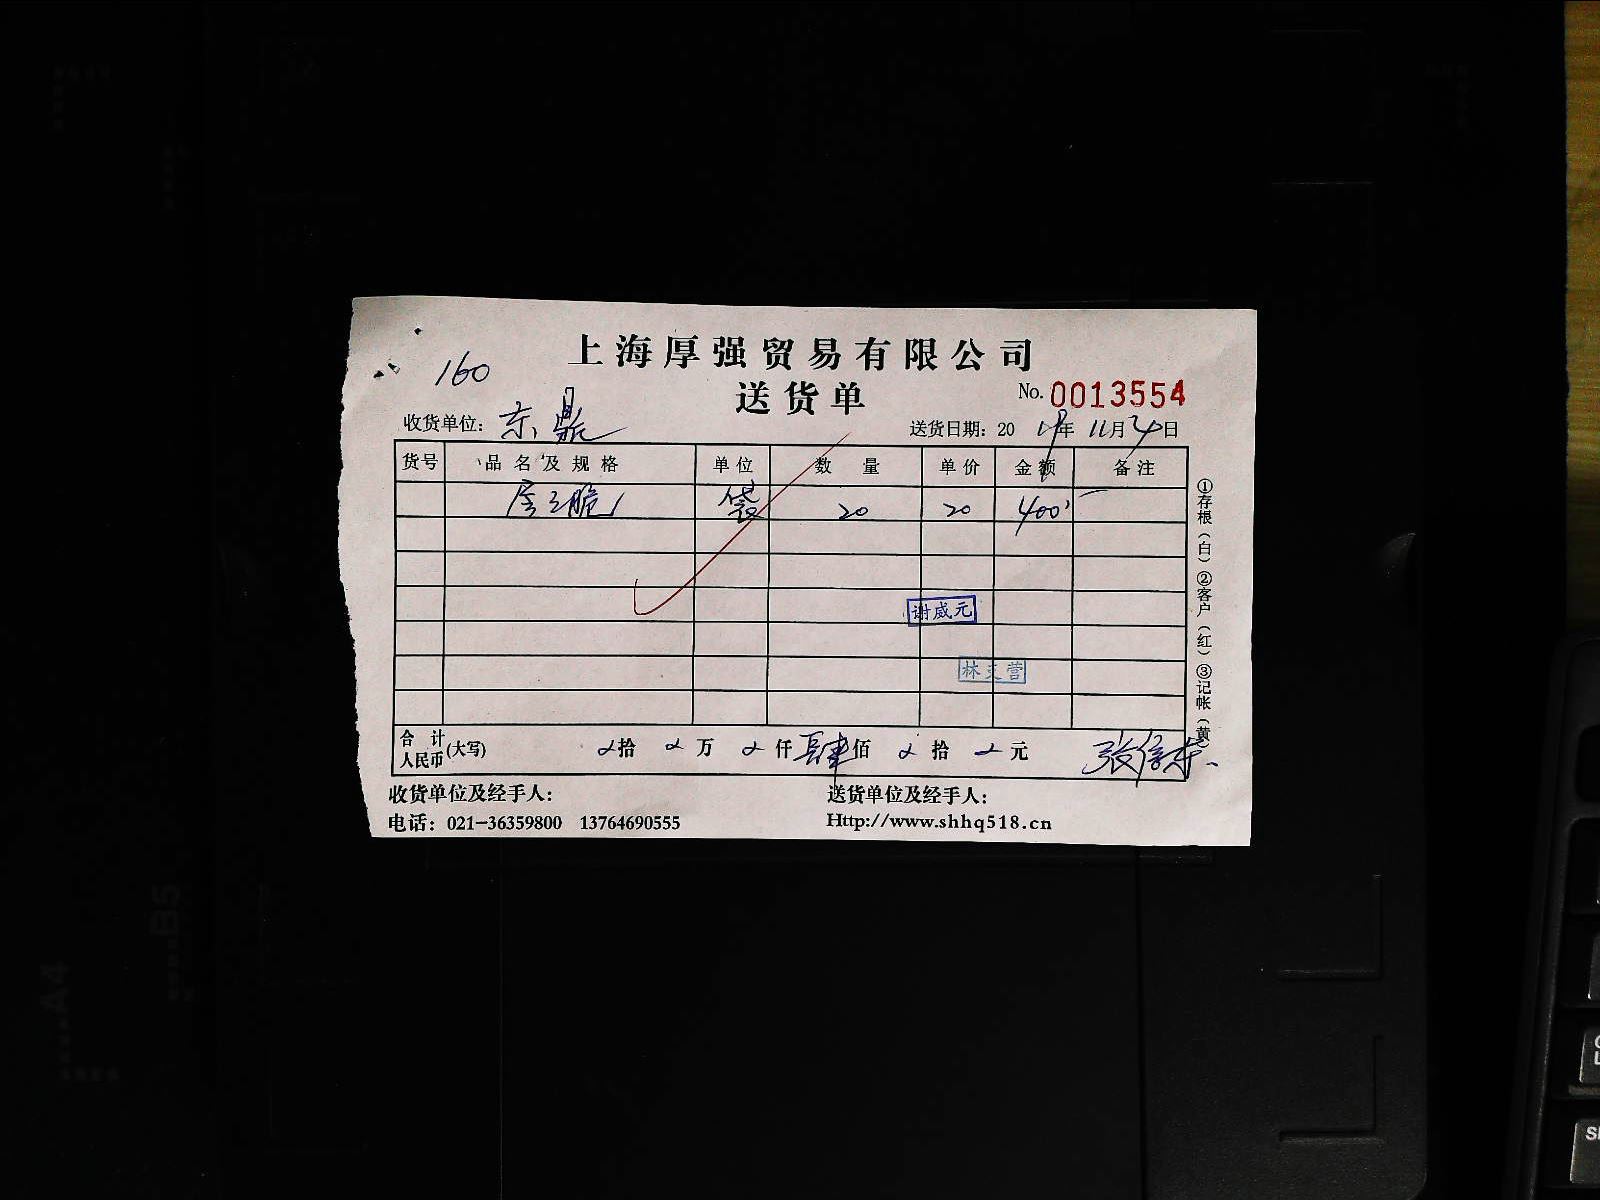 上海厚强贸易有限公司
160
送货单
No. 0013554
收货单位：东鼎
送货日期：2019年11月4日
货号 品名及规格 单位 数量 单价 金额 备注
袋 20 20 400
谢威元
林支营
合计人民币(大写) 拾 万 仟肆佰 拾 元 张信春
收货单位及经手人： 送货单位及经手人：
电话：021-36359800 13764690555 Http://www.shhq518.cn
①存根（白）②客户（红）③记帐（黄）
B5
A4